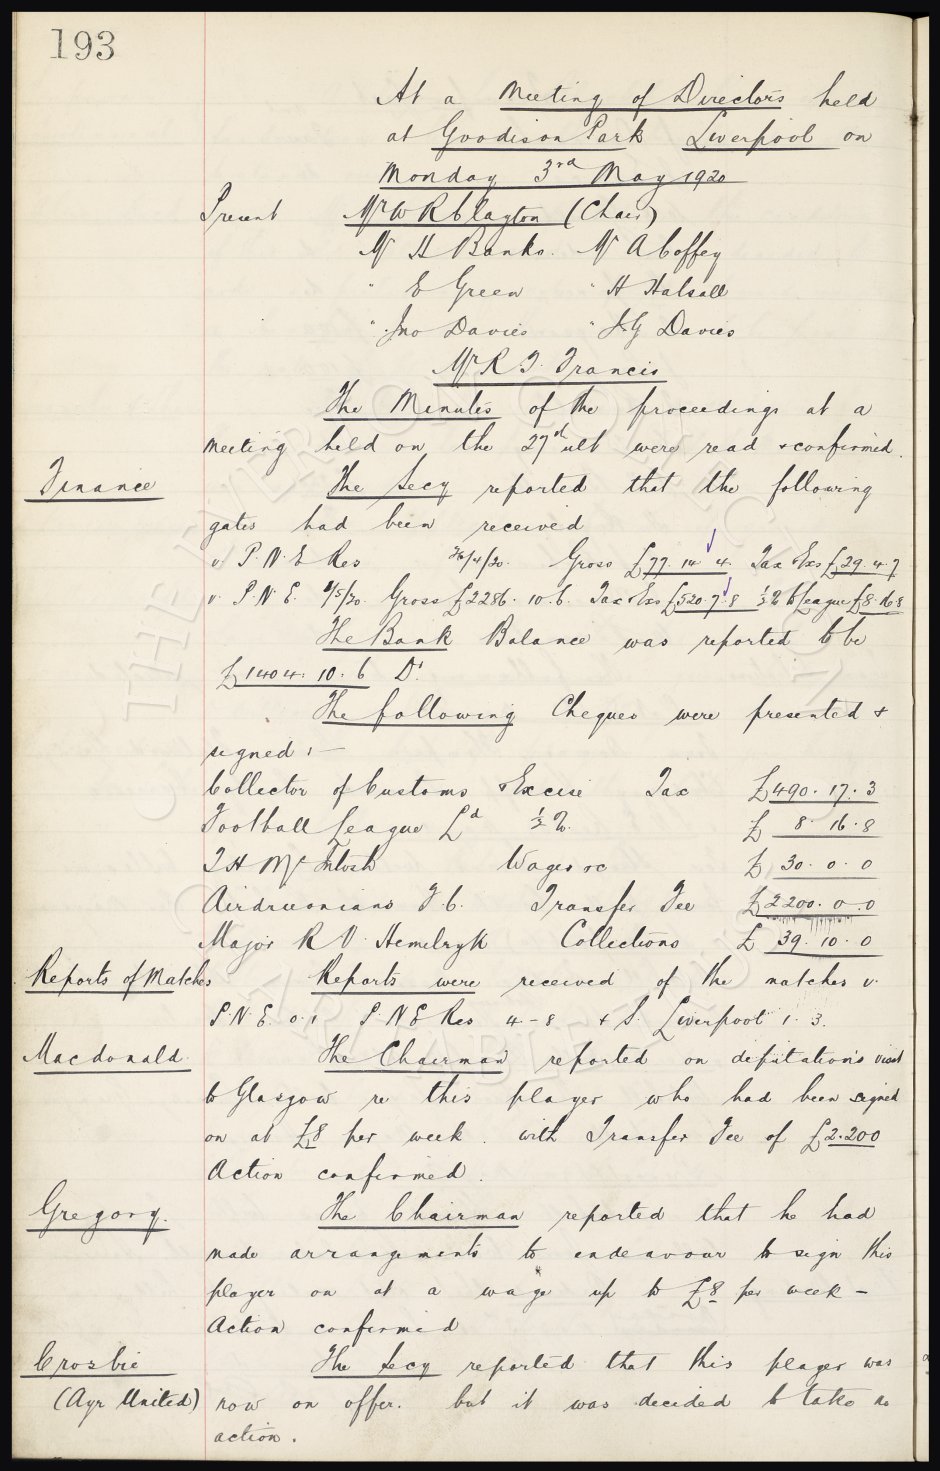 193
At a Meeting of Directors held
at Goodison Park Liverpool on
Monday 3rd May 1920
Present Mr W R Clayton (Chair)
Mr H Banks. Mr A Coffey
" E Green " H Halsall
" Jno Davies " J G Davies
Mr R T. Francis
The Minutes of the proceedings at a
meeting held on the 27th ult were read & confirmed.
Finance The Secy reported that the following
gates had been received
v. P.N.E Res 26/4/20. Gross £77. 14. 4. Tax & Exs £29. 4. 7
v. P.N.E. 1/5/20. Gross £2286. 10. 6. Tax & Exs £520. 7. 8 ½% to League £8. 16. 8
The Bank Balance was reported to be
£1404. 10. 6 Dr.
The following Cheques were presented &
signed :—
Collector of Customs & Excise Tax £490. 17. 3
Football League Ld ½%. £ 8. 16. 8
T H McIntosh Wages &c £ 30. 0. 0
Airdrieonians F.C. Transfer Fee £2200. 0. 0
Major R V. Hemelryk Collections £ 39. 10. 0
Reports of Matches Reports were received of the matches v.
P.N.E. 0. 1 P.N.E Res 4 - 8 & S. Liverpool 1. 3.
Macdonald The Chairman reported on deputation's visit
to Glasgow re this player who had been signed
on at £8 per week. with Transfer Fee of £2.200
Action confirmed.
Gregory. The Chairman reported that he had
made arrangements to endeavour to sign this
player on at a wage up to £8 per week –
Action confirmed
Crosbie The Secy reported that this player was
(Ayr United) now on offer. but it was decided to take no
action.
THE EVERTON COLLECTION
CHARITABLE TRUST